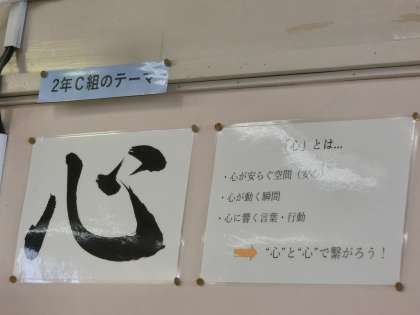 2年C組のテーマ
心
「心」とは...
・心が安らぐ空間（安心）
・心が動く瞬間
・心に響く言葉・行動
“心”と“心”で繋がろう！